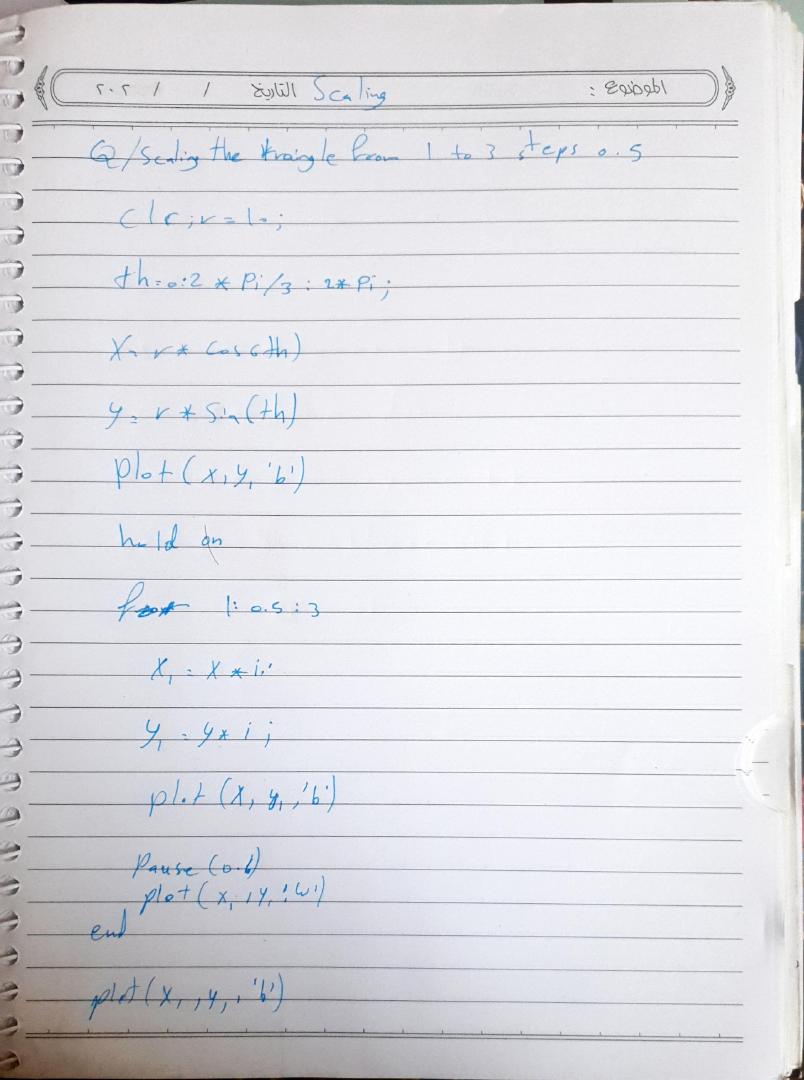 الموضوع : Scaling التاريخ / / ٢٠٢
Q/Scaling the traingle from 1 to 3 steps 0.5
clc;r=10;
th=0:2*Pi/3:2*Pi;
X=r*cos(th)
y=r*Sin(th)
plot(x,y,'b')
hold on
for 1:0.5:3
X₁=X*i;
y₁=y*i;
plot(X₁y₁,'b')
Pause(0.6)
plot(x₁,y₁,'w')
end
plot(x₁,y₁,'b')